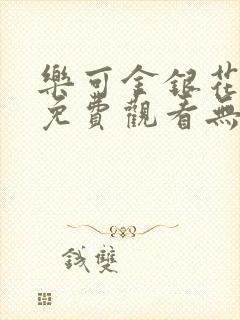 樂可金銀花
免費觀看無
錢雙